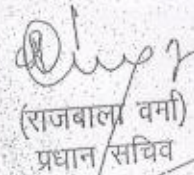 (राजबाला वर्मा)
प्रधान सचिव